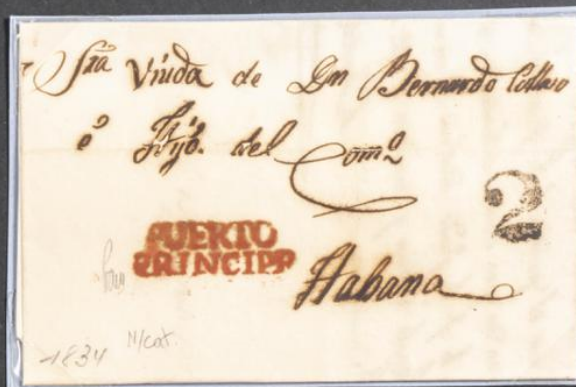 Sra Viuda de Dn Bernardo
é Hijo. del Com.o
2
PUERTO
PRINCIPE
Habana
1834 N/cat.